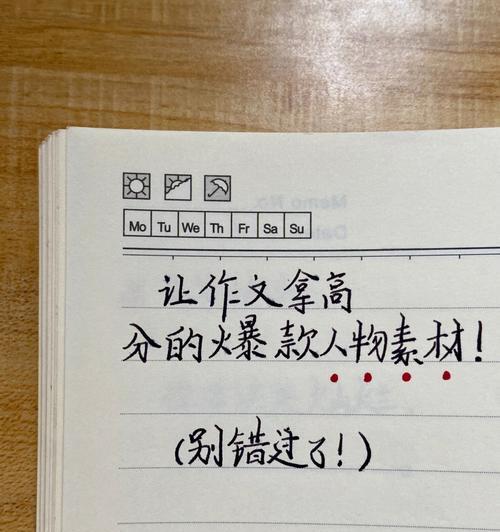 Mo Tu We Th Fr Sa Su
让作文拿高
分的爆款人物素材！
（别错过了！）